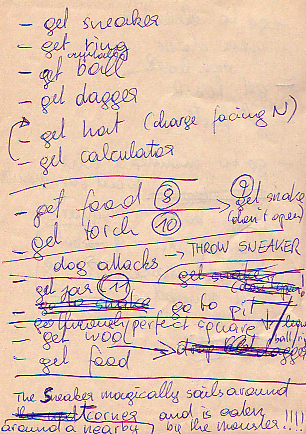 - get sneaker
- get ring
- get ball
- get dagger
- get hat (charge facing N)
- get calculator
- get food (8) → (9) get snake
(don't open)
- get torch (10)
dog attacks → THROW SNEAKER
- get jar (11) get snake
go to snake go to pit
- go through/perfect square ↓
- get wool
- get food →
The Sneaker magically sails around
the corner and is eaten
around a nearby by the monster!!!!